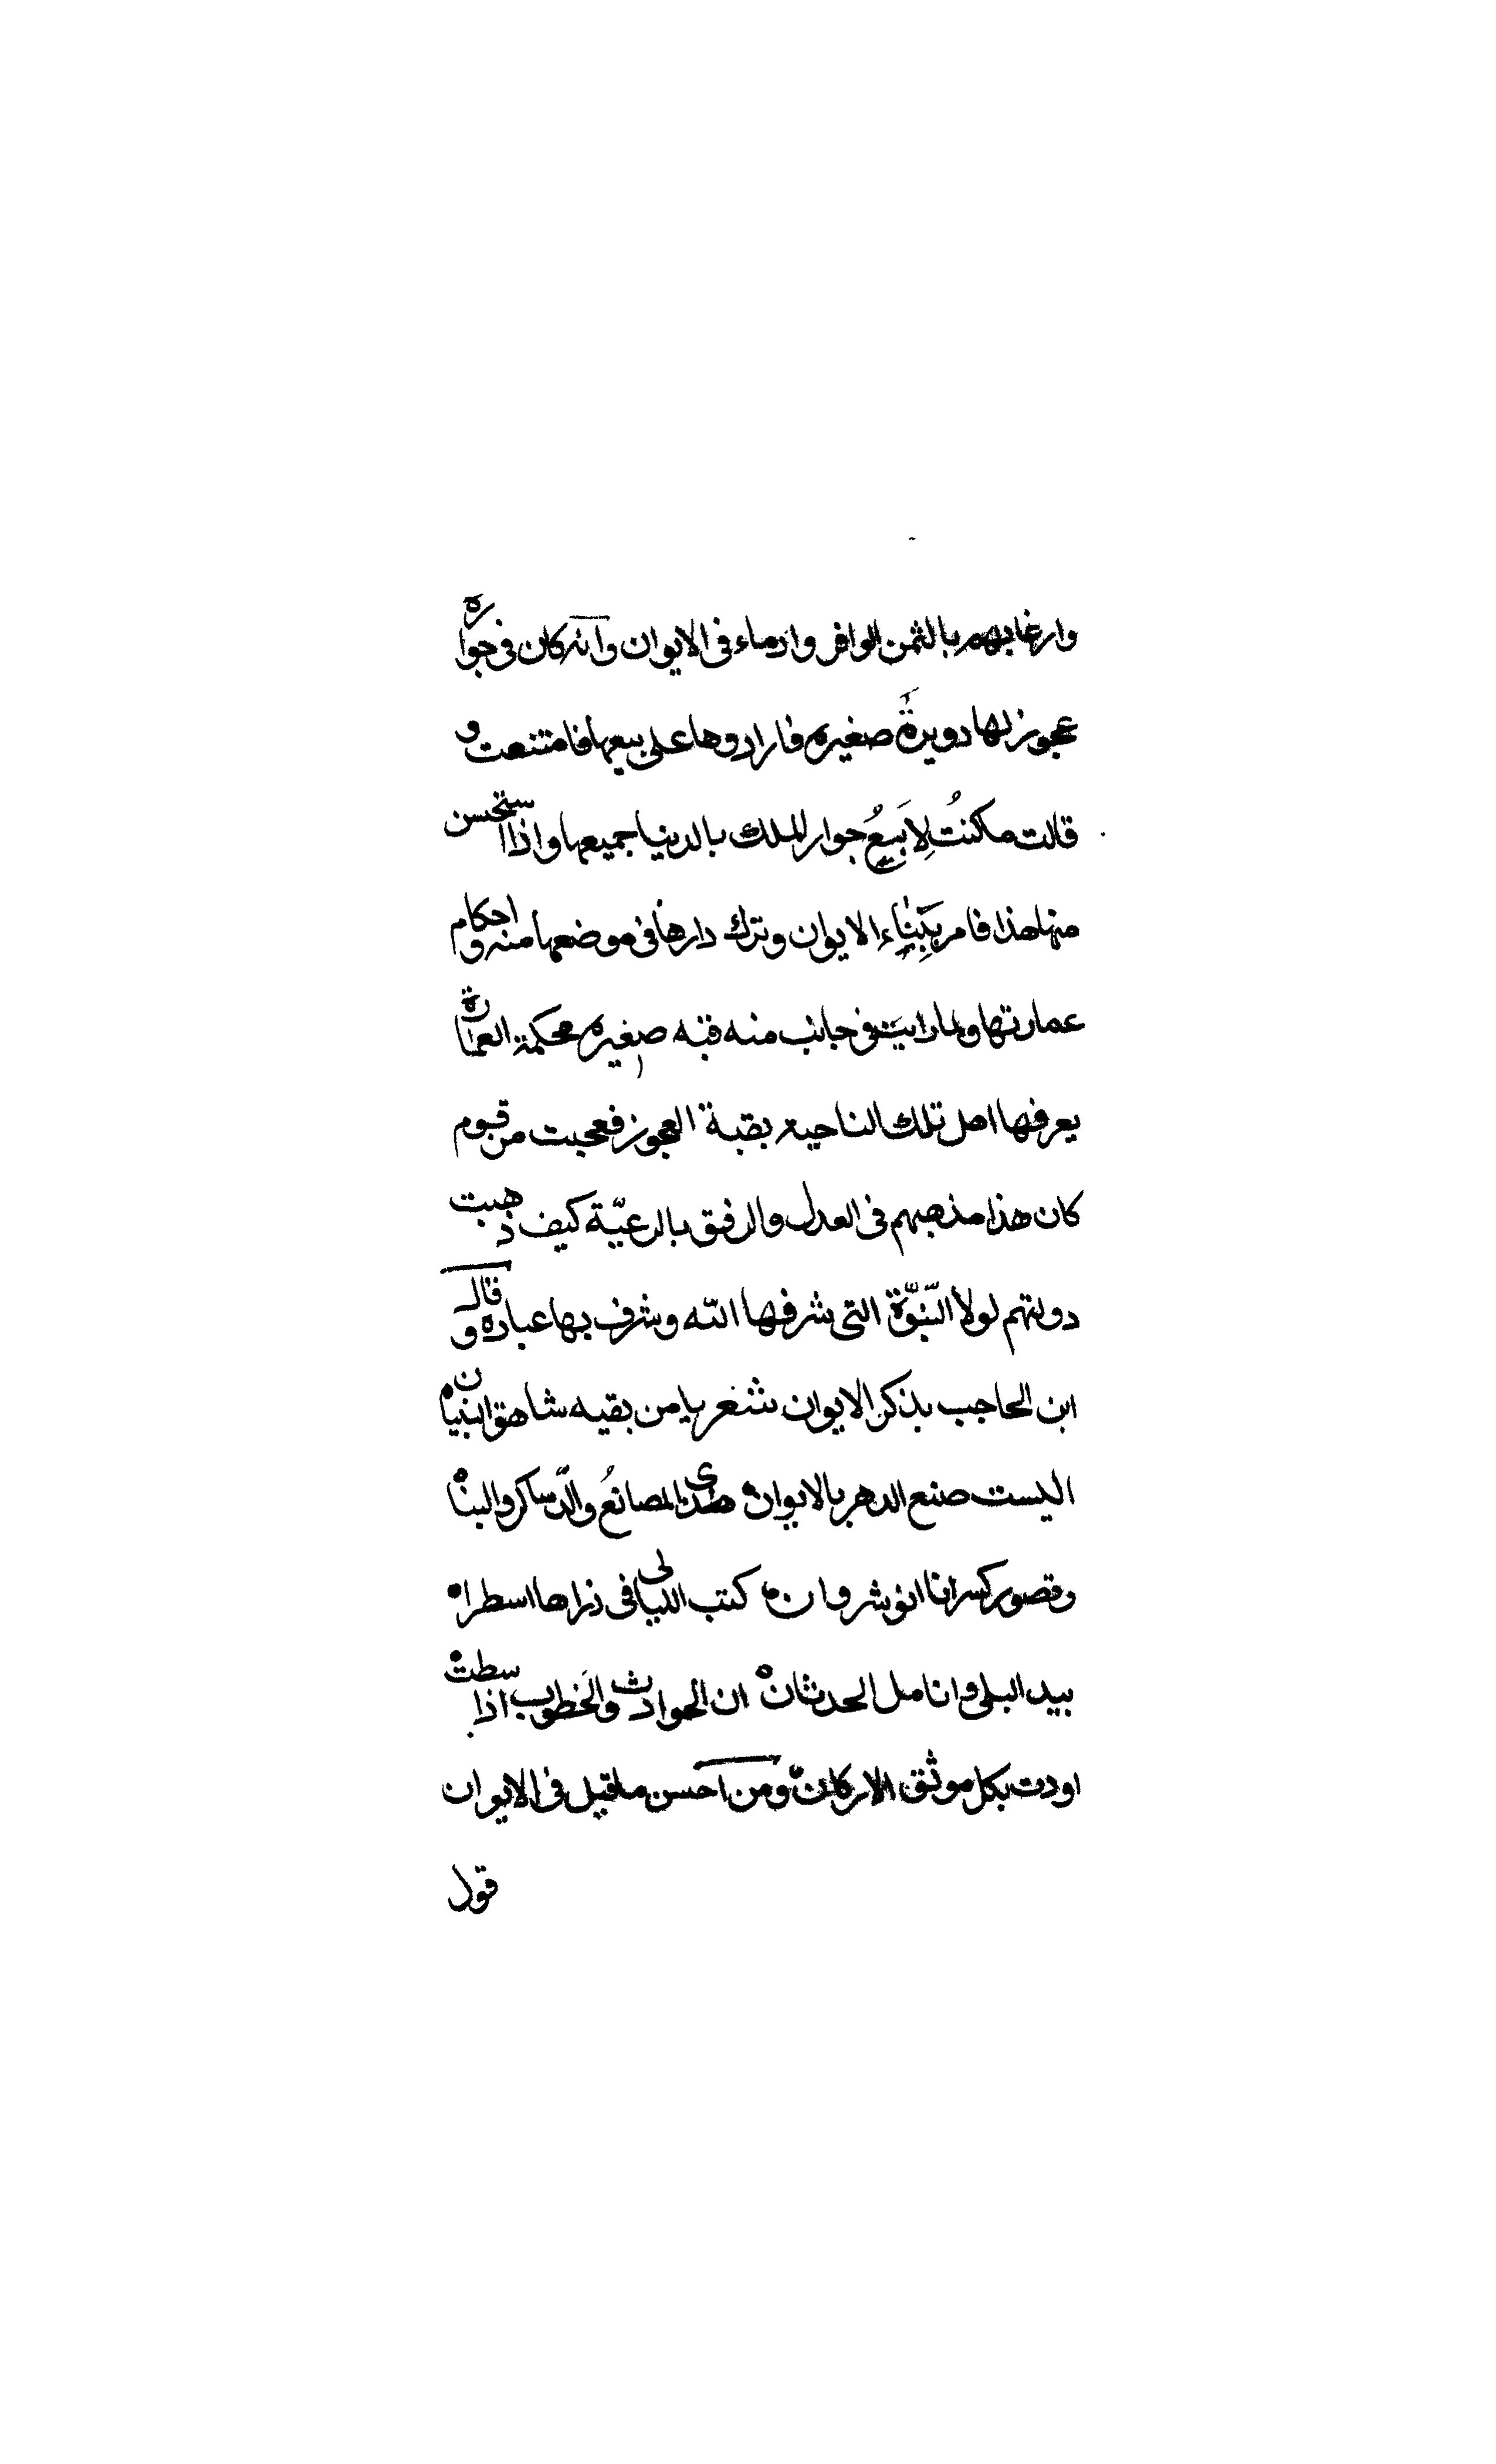 وارغابهم بالثمن الوافر وادماء فى الايوان وانه كان فى جواره
عجوز لها دويرة صغيره فارادوها على بيعها فامتنعت و
قالت ماكنتُ لِاَبيعُ جوار الملك بالدنيا جميعها واذا استحسن
منها هذا فامر بِبِنَاء الايوان وترك دارها فى موضعها منه واحكام
عمارتها ولما رايت فى جانب منه قبه صغيره محكمة العمارة
يعرفها اهل تلك الناحيه بقبة العجوز فعجبت من قوم
كان هذا مذهبهم فى العدل والرفق بالرعيّة كيف ذهبت
دولتهم لولا النّبوّة التى شرفها الله وشرف بها عباده وقال
ابن الحاجب يذكر الايوان شعر يا من بقيه شاهق البنيان
اليست صنع الدهر بالايوان هذى المصانعُ والدّساكر والبنا
وقصور كسرانا انوشروان كتب الليالى فى ذراها اسطرا
بيد البلى وانامل الحدثان ان الحوادث والخطوب اذا سطت
اودت بكل موثق الاركان ومن احسن ما قيل فى الايوان
قول